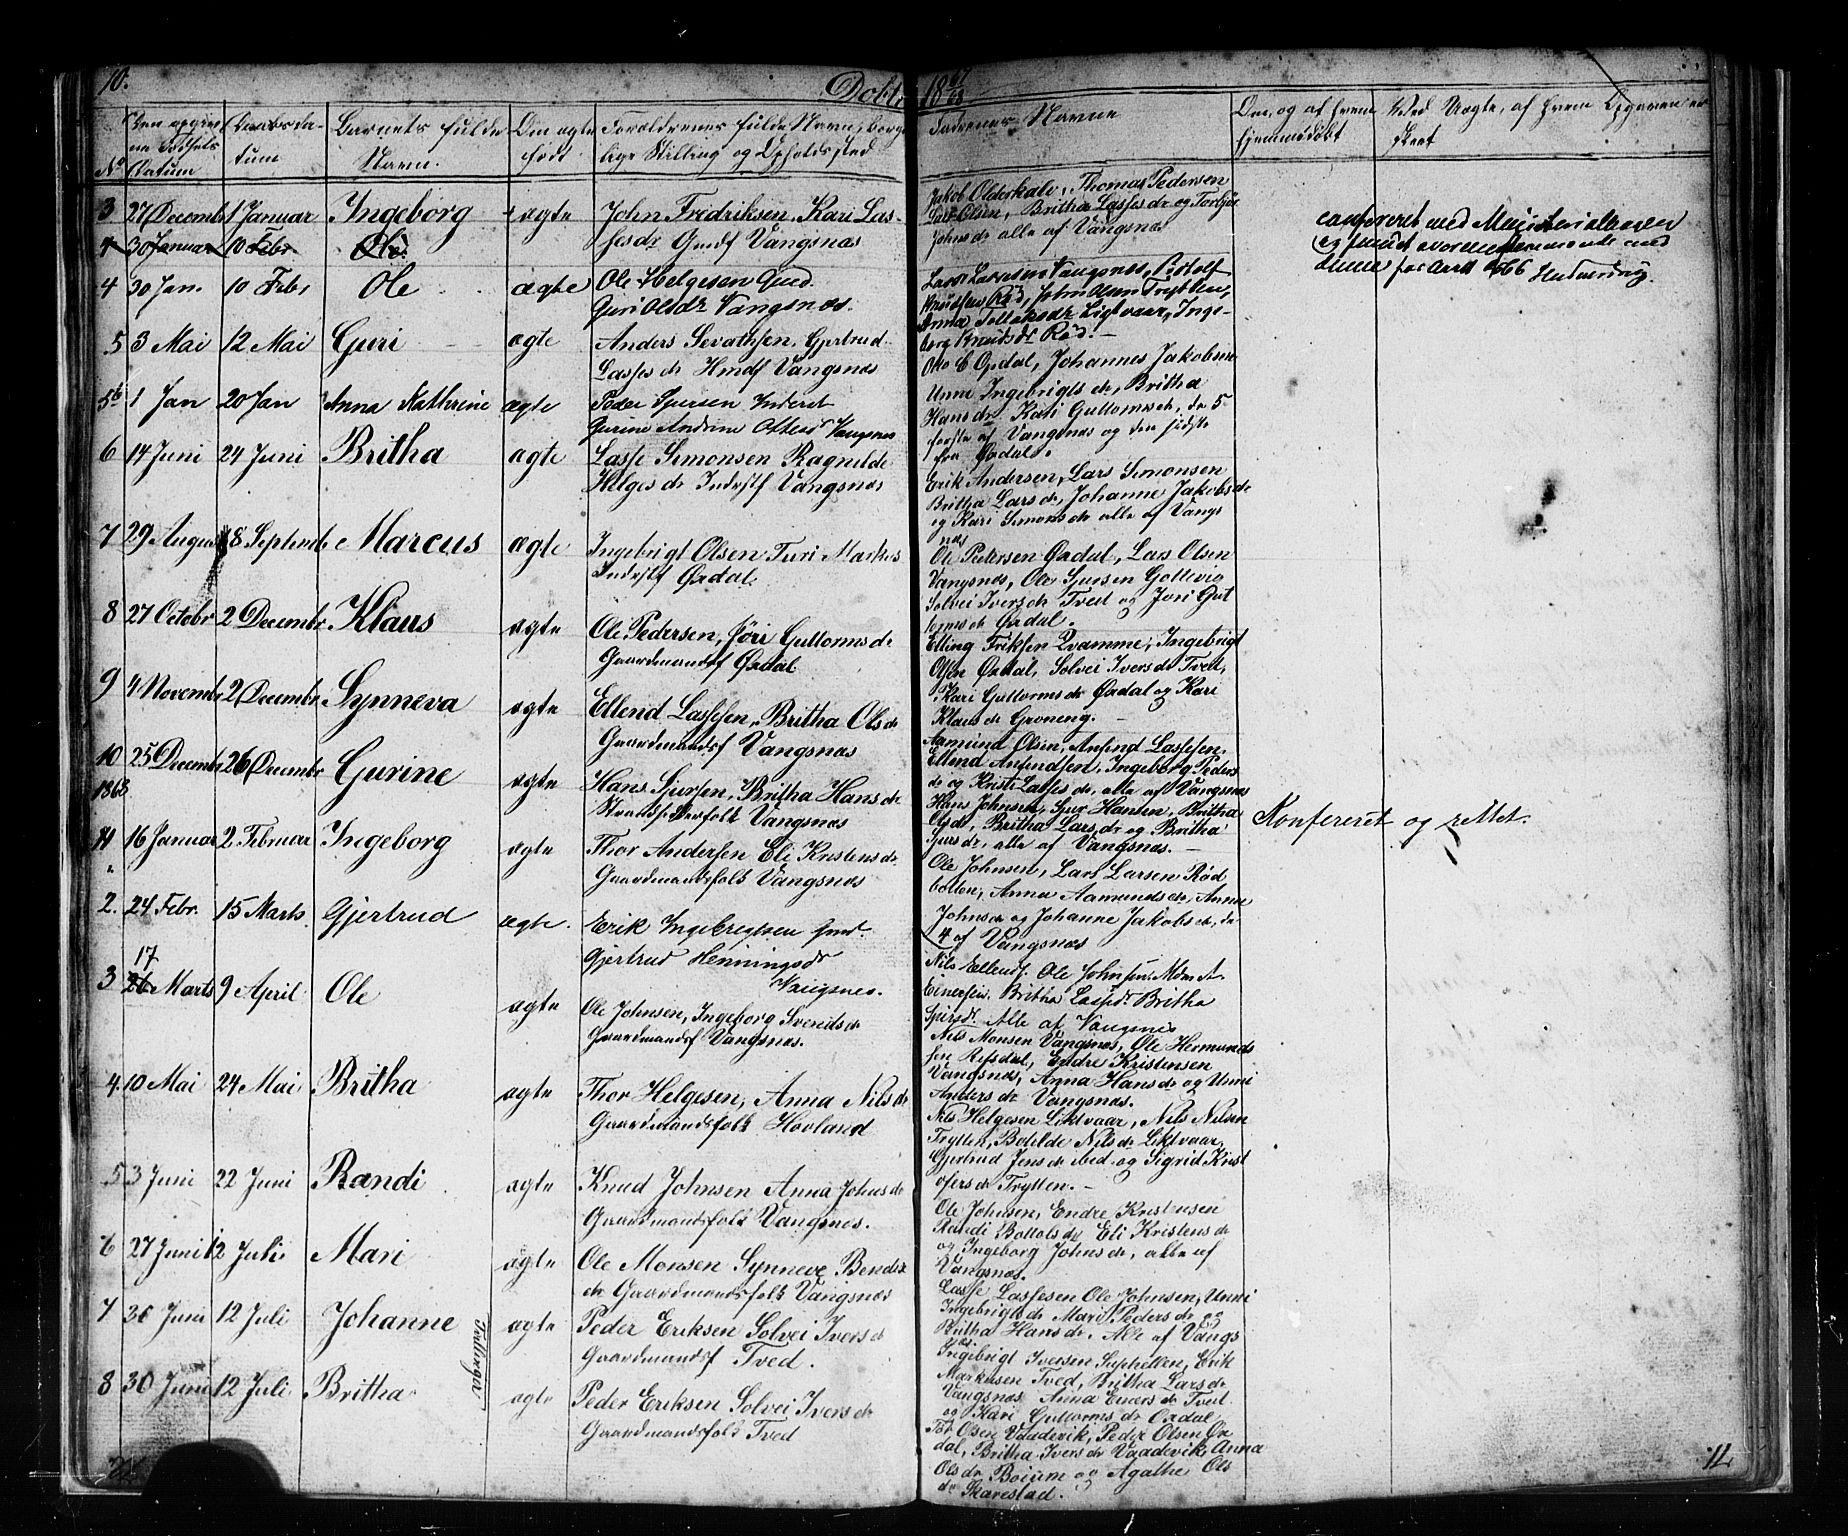 10.
Døbte
1867
68
No
Barnets fulde
Navn.
Om ægte
født
Forældrenes fulde Navn, borger-
lige Stilling og Opholdssted
Fadrenes Navne
Om, og af hvem
hjemmedøbt
Ved Uægte, af hvem Opgaven er
skeet
3 27 Decemb 1 Januar Ingeborg ægte John Fredriksen, Kari Las-
sesdr Gmdf Vangsnæs
Jakob Olderkalv, Thomas Pedersen
Olsen, Britha Lassesdr og Torbjør
Johnsdr alle af Vangsnæs
4 30 Januar 10 Febr Ole
4 30 Jan. 10 Febr Ole ægte Ole Helgesen Gmd.
Guri Olsdr Vangsnæs.
Vangsnæs, Botolf
Knudsen Rød, John Olsen Trytten,
Anna Tollaksdr Ligtvaar, Inge-
borg Knudsdr Rød.
5 3 Mai 12 Mai Guri ægte Anders Sevathsen, Gjertrud
Lassesdr Hmdf Vangsnæs
Otto C Opdal, Johannes Jakobsen
Unne Ingebrigtsdr, Britha
Hansdr Kari Guttormsdr, de 5
første af Vangsnæs og den sidste
fra Ørdal.
5b 1 Jan 20 Jan Anna Kathrine ægte Peder Sjursen Inderst
Gurine Andrine Ottesdr Vangsnæs
6 14 Juni 24 Juni Britha ægte Lasse Simonsen Ragnilde
Helgesdr Inderstf Vangsnæs
Erik Andersen, Lars Simonsen
Britha Larsdr, Johanne Jakobsdr
og Kari Simonsdr alle af Vangs
næs
7 29 August 8 Septemb Marcus ægte Ingebrigt Olsen Turi Markus
Inderstf Ørdal
Ole Pedersen Ørdal, Lars Olsen
Vangsnæs, Ole Sjursen Gottevig
Solvei Iversdr Tved og Jori Gut
tormsdr Ørdal.
8 27 Octobr 2 Decembr Klaus ægte Ole Pedersen, Jori Guttormsdr
Gaardmandsf Ørdal
Elling Eriksen Qvamme, Ingebrigt
Olsen Ørdal, Solvei Iversdr Tved,
Kari Guttormsdr Ørdal og Kari
Klausdr Grøneng.
9 4 Novembr 2 Decembr Synneva ægte Ellend Lassesen, Britha Olsdr
Gaardmandsf Vangsnæs
Aamund Olsen, Anfind Lassesen,
Ellend Anfindsen, Ingeborg Peders
dr og Kristi Lassesdr, alle af Vangsnæs
10 25 Decembr 26 Decembr Gurine ægte Hans Sjursen, Britha Hansdr
Strandsidderfolk Vangsnæs
Hans Johnsen, Sjur Hansen, Britha
Olsdr, Britha Larsdr og Britha
Sjursdr, alle af Vangsnæs.
1868
1 16 Januar 2 Februar Ingeborg ægte Thor Andersen Eli Kristensdr
Gaardmandsfolk Vangsnæs
Ole Johnsen, Lars Larsen Rød
botten, Anna Aamundsdr, Anna
Johnsdr og Johanne Jakobsdr, de
4 af Vangsnæs
Konfereret og rettet.
2. 24 Febr. 15 Marts Gjertrud ægte. Erik Ingebregtsen Gmd.
Gjertrud Henningsdr
Vangsnes.
Nils Ellends. Ole Johnsen.
Einersen. Britha Lassesdr. Britha
Sjursdr. Alle af Vangsnes
3 17 26 Marts 9 April Ole ægte Ole Johnsen, Ingeborg Svendsdr
Gaardmandsf Vangsnæs.
Nils Monsen Vangsnæs, Ole Hermunds
sen Refsdal, Endre Kristensen
Vangsnæs, Anna Hansdr og Unni
Andersdr Vangsnæs.
4. 10 Mai 24 Mai Britha ægte Thor Helgesen, Anna Nilsdr
Gaardmandsfolk Hovland
Nils Helgesen Liktvaar, Nils Nilsen
Trytten, Botilde Nilsdr Liktvaar,
Gjertrud Jensdr og Sigrid Krist
ofersdr Trytten.
5 3 Juni 22 Juni Randi ægte Knud Johnsen Anna Johnsdr
Gaardmandsfolk Vangsnæs.
Ole Johnsen, Endre Kristensen
Randi Bottolsdr Eli Kristensdr
og Ingeborg Johnsdr, alle af
Vangsnæs.
6 27 Juni 12 Juli Mari ægte Ole Monsen Synneve Bends
dr Gaardmandsfolk Vangsnæs
Lasse Lassesen Ole Johnsen, Unni
Ingebrigtsdr Mari Pedersdr og
Britha Hansdr, Alle af Vangs
næs
7 30 Juni 12 Juli Johanne Tvillinger ægte Peder Eriksen Solvei Iversdr
Gaardmandsf Tved.
Ingebrigt Iversen Suphellen, Erik
Markusen Tved, Britha Larsdr
Vangsnæs Anna Einersdr Tved
og Kari Guttormsdr Ordal
8 30 Juni 12 Juli Britha ægte Peder Eriksen Solvei Iversdr
Gaardmandsfolk Tved
Tor Olsen Vaadevik, Peder Olsen Ør
dal, Britha Iversdr Vaadevik, Anna
Olsdr Boium og Agathe Ols
dr Skarestad.
11